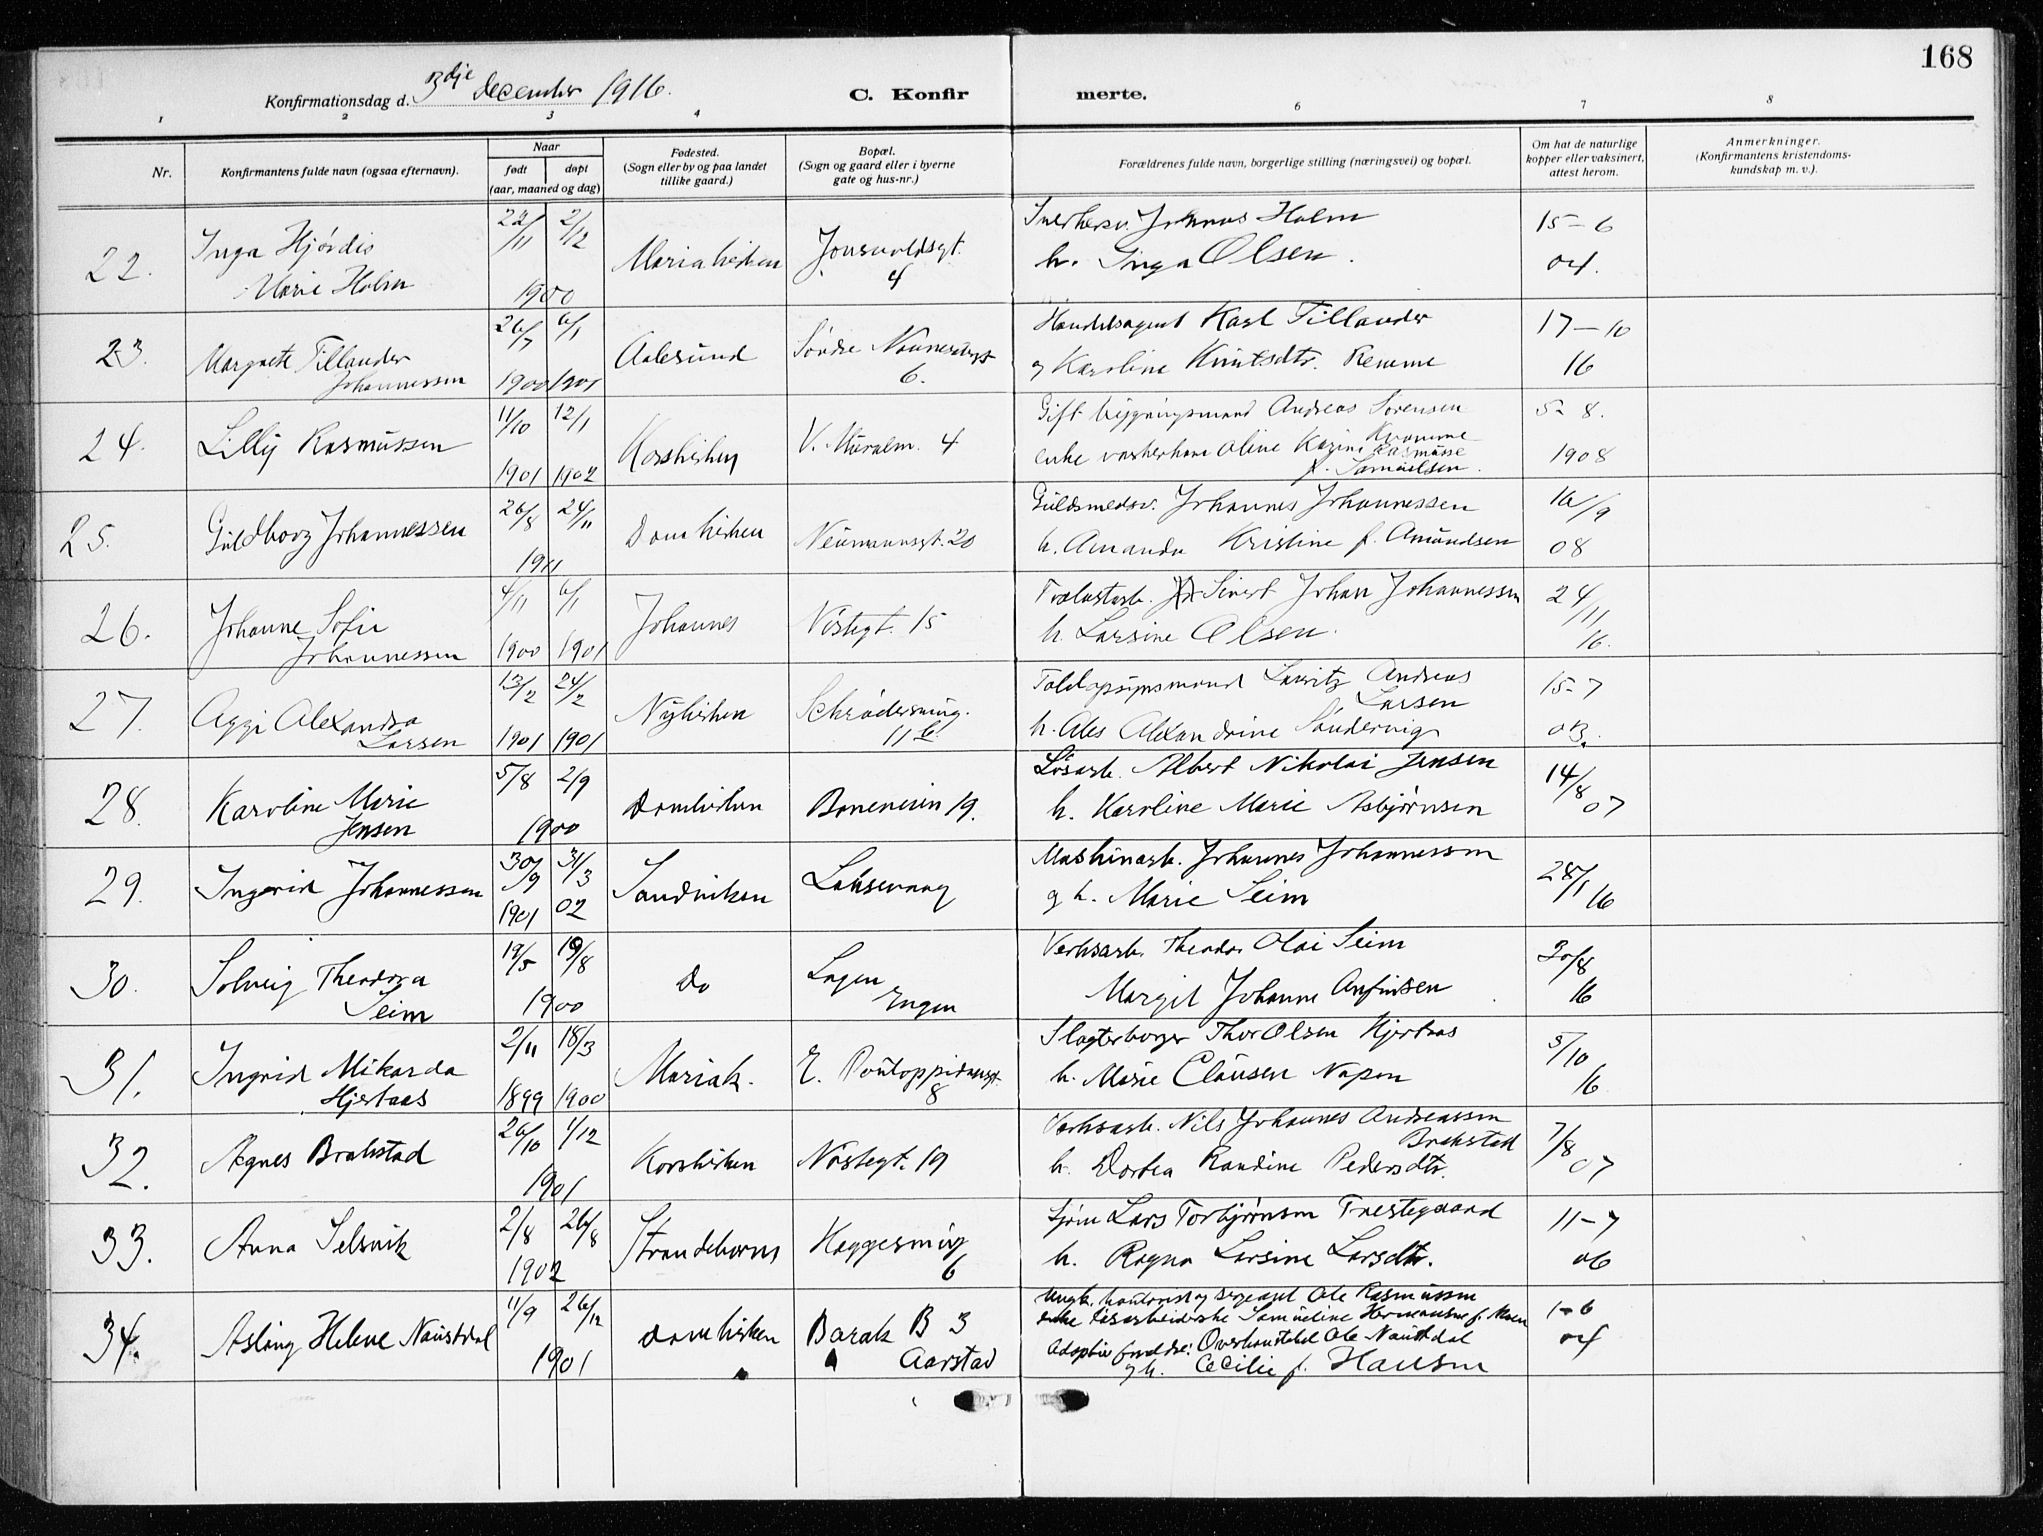 168
Konfirmationsdag d. 3dje december 1916.
C. Konfirmerte.
1 2 3 4 6 7 8
Nr.
Konfirmantens fulde navn (ogsaa efternavn).
Naar
født døpt
(aar, maaned og dag)
Fødested.
(Sogn eller by og paa landet
tillike gaard.)
Bopæl.
(Sogn og gaard eller i byerne
gate og hus-nr.)
Forældrenes fulde navn, borgerlige stilling (næringsvei) og bopæl.
Om hat de naturlige
kopper eller vaksinert,
attest herom.
Anmerkninger.
(Konfirmantens kristendoms-
kundskap m. v.).
22. Inga Hjórdis
Marie Holm
22/11 2/12
1900
Mariakirken
4
Johannes Holm
h. Inga Olsen.
15-6
04.
23. Margrete Tillander
Johannessen
26/7 6/1
1900 1901
Aalesund
Søndre
6.
Handelsagent Karl Tillander
og Karoline Knutsdtr. Remme
17-10
16
24. Lilly Rasmussen
11/10 12/1
1901 1902
Korskirken
V. Muralm. 4
Gift bygningsmand Andreas Sørensen
enke vaskerkone Oline Karine Kvamme
Rasmusse
f. Samuelsen.
5-8.
1908
25. Guldborg Johannessen
26/8 24/11
1901
Domkirken
Neumannsgt. 20
Guldsmedsv. Johannes Johannessen
h. Amanda Kristine f. Amundsen
16/9
08
26. Johanne Sofie
Johannessen
4/11 6/1
1900 1901
Johannes
Nøstegt. 15
Sivert Johan Johannessen
h. Larsine Olsen.
24/11
16.
27. Aggi Alexandra
Larsen
13/2 24/2
1901 1901
Nykirken
Schrødersmug.
11 b
Toldopsynsmand Lauritz Andreas
Larsen
h. Ales Alexandrine Søndervig
15-7
03.
28. Karoline Marie
Jensen
5/8 2/9
1900
Domkirken
19.
Løsarb. Albert Nikolai Jensen
h. Karoline Marie Asbjørnsen
14/8 07
29. Ingerid Johannessen
30/9 31/3
1901 02
Sandviken
Laksevaag
Maskinarb. Johannes Johannessen
og h. Marie Seim
28/1 16
30. Solveig Theodora
Seim
19/5 19/8
1900
Do
Lagen
Engen
Verksarb. Theodor Olai Seim
Margit Johanne Anfinsen
30/8
16
31. Ingrid Mikarda
Hjertaas
2/11 18/3
1899 1900
Mariak.
E. Pontoppidansgt.
8
Slagterborger Thor Olsen Hjertaas
h. Marie Clausen Napen
3/10
16
32. Agnes Brakstad
26/10 1/12
1901
Korskirken
Nøstegt. 19
Verksarb. Nils Johannes Andreassen
Brakstad
h. Dortea Randine Pedersdtr.
7/8 07
33. Anna Selsvik
2/8 26/8
1902
Strandebarm
Haggesmug
6
Sjøm Lars Torbjørnsen Tveitegaard
h. Ragna Larsine Larsdtr.
11-7
06
34. Aslaug Helene Naustdal
11/9 26/12
1901
Domkirken
Barak B 3
Aarstad
Ungk. kontorist og sergeant Ole Rasmussen
enke løsarbeiderske Samueline Hermansen f. Moen
Adoptivforeldre: Overkonstabel Ole Naustdal
og h. Cecilie f. Hansen
1-6
04